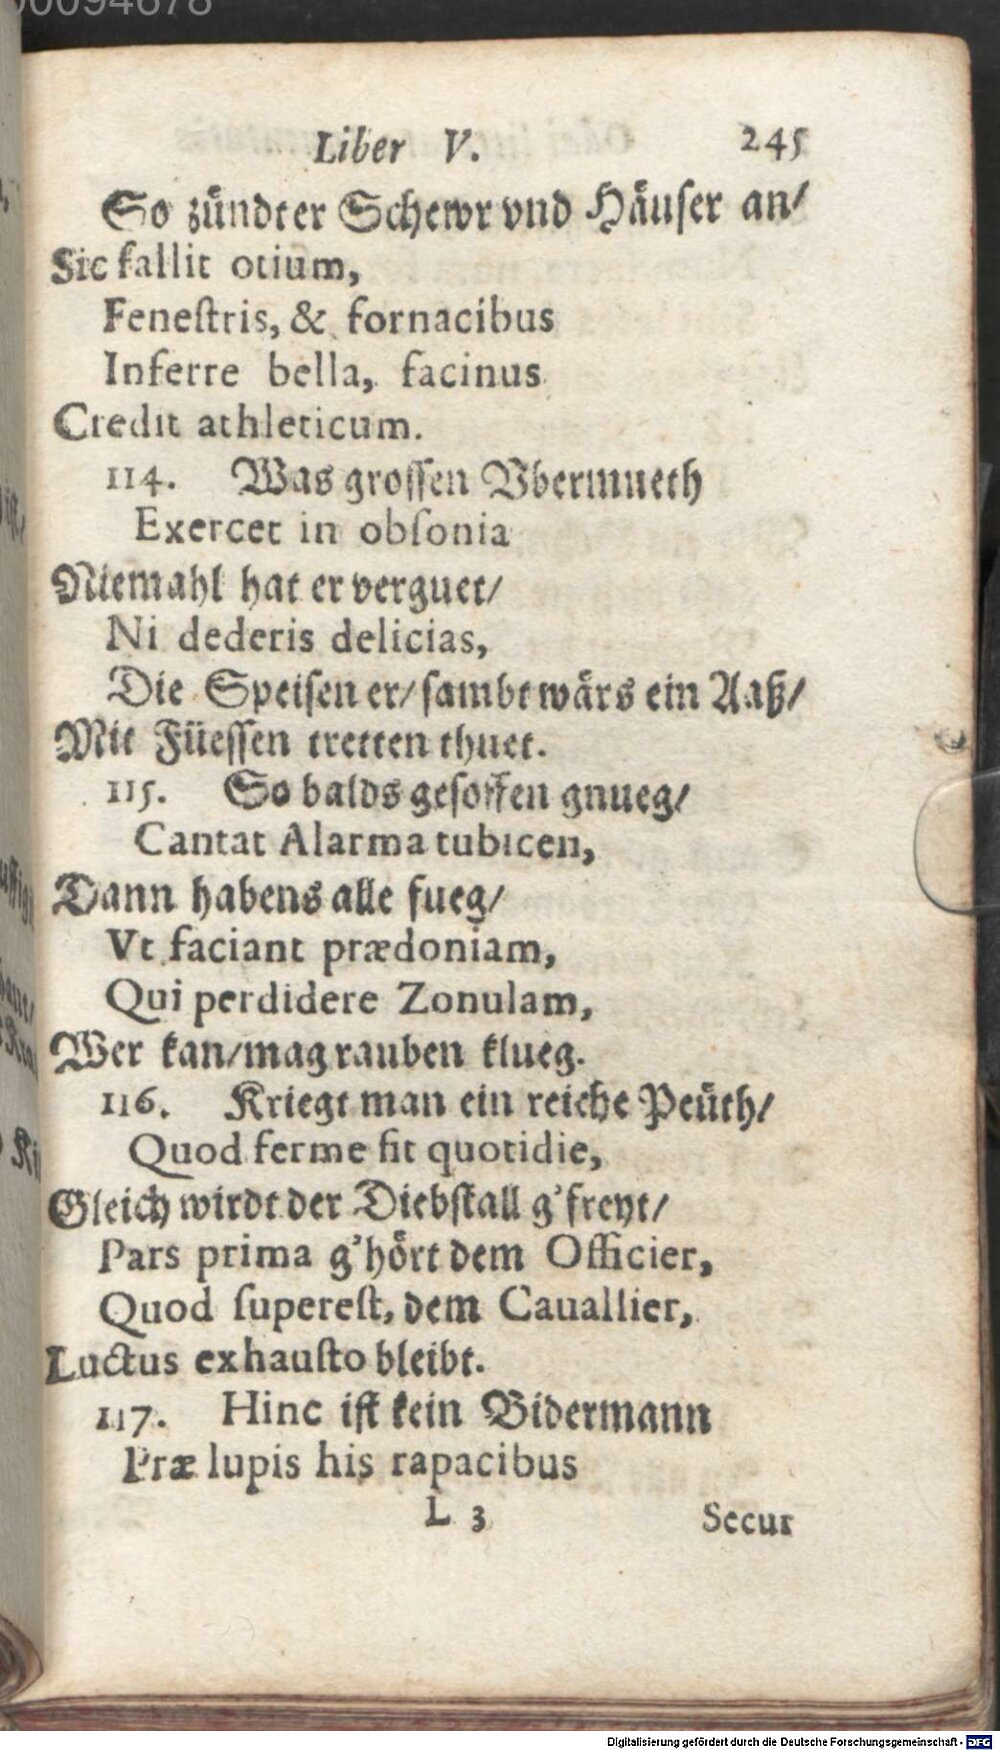 00094678
Liber V. 245
So zündter Schewr vnd Häuser an/
Sic fallit otium,
Feneſtris, & fornacibus
Inferre bella, facinus
Credit athleticum.
114. Was groſſen Vbermueth
Exercet in obſonia
Niemahl hat er verguet/
Ni dederis delicias,
Die Speiſen er/ ſambt wärs ein Aaß/
Mit Füeſſen tretten thuet.
115. So balds geſoffen gnueg/
Cantat Alarma tubicen,
Dann habens alle fueg/
Vt faciant prædoniam,
Qui perdidere Zonulam,
Wer kan/mag rauben klueg.
116. Kriegt man ein reiche Peüth/
Quod ferme fit quotidie,
Gleich wirdt der Diebſtall g'freyt/
Pars prima g'hört dem Officier,
Quod ſupereſt, dem Cauallier,
Luctus exhauſto bleibt.
117. Hinc iſt kein Bidermann
Præ lupis his rapacibus
L 3 Secur
Digitalisierung gefördert durch die Deutsche Forschungsgemeinschaft - DFG